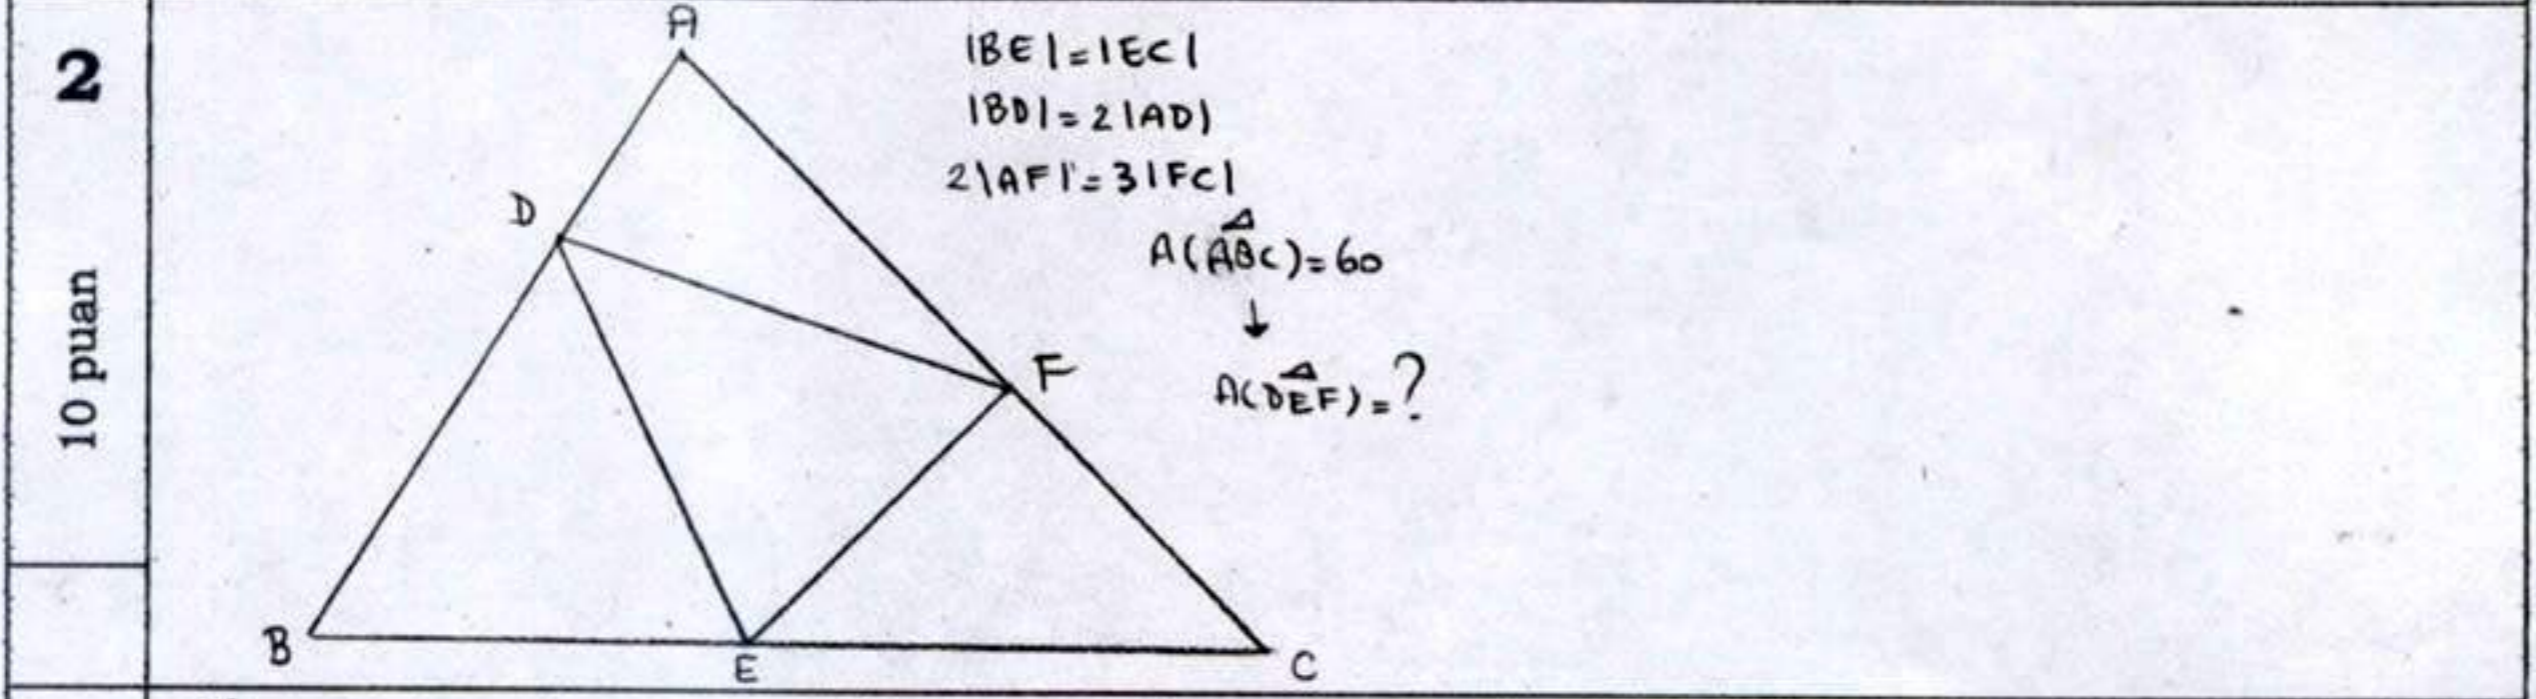 2
10 puan
A
D
B
E
C
F
|BE|=|EC|
|BD|=2|AD|
2|AF|=3|FC|
A(ABC)=60
↓
A(DEF)=?